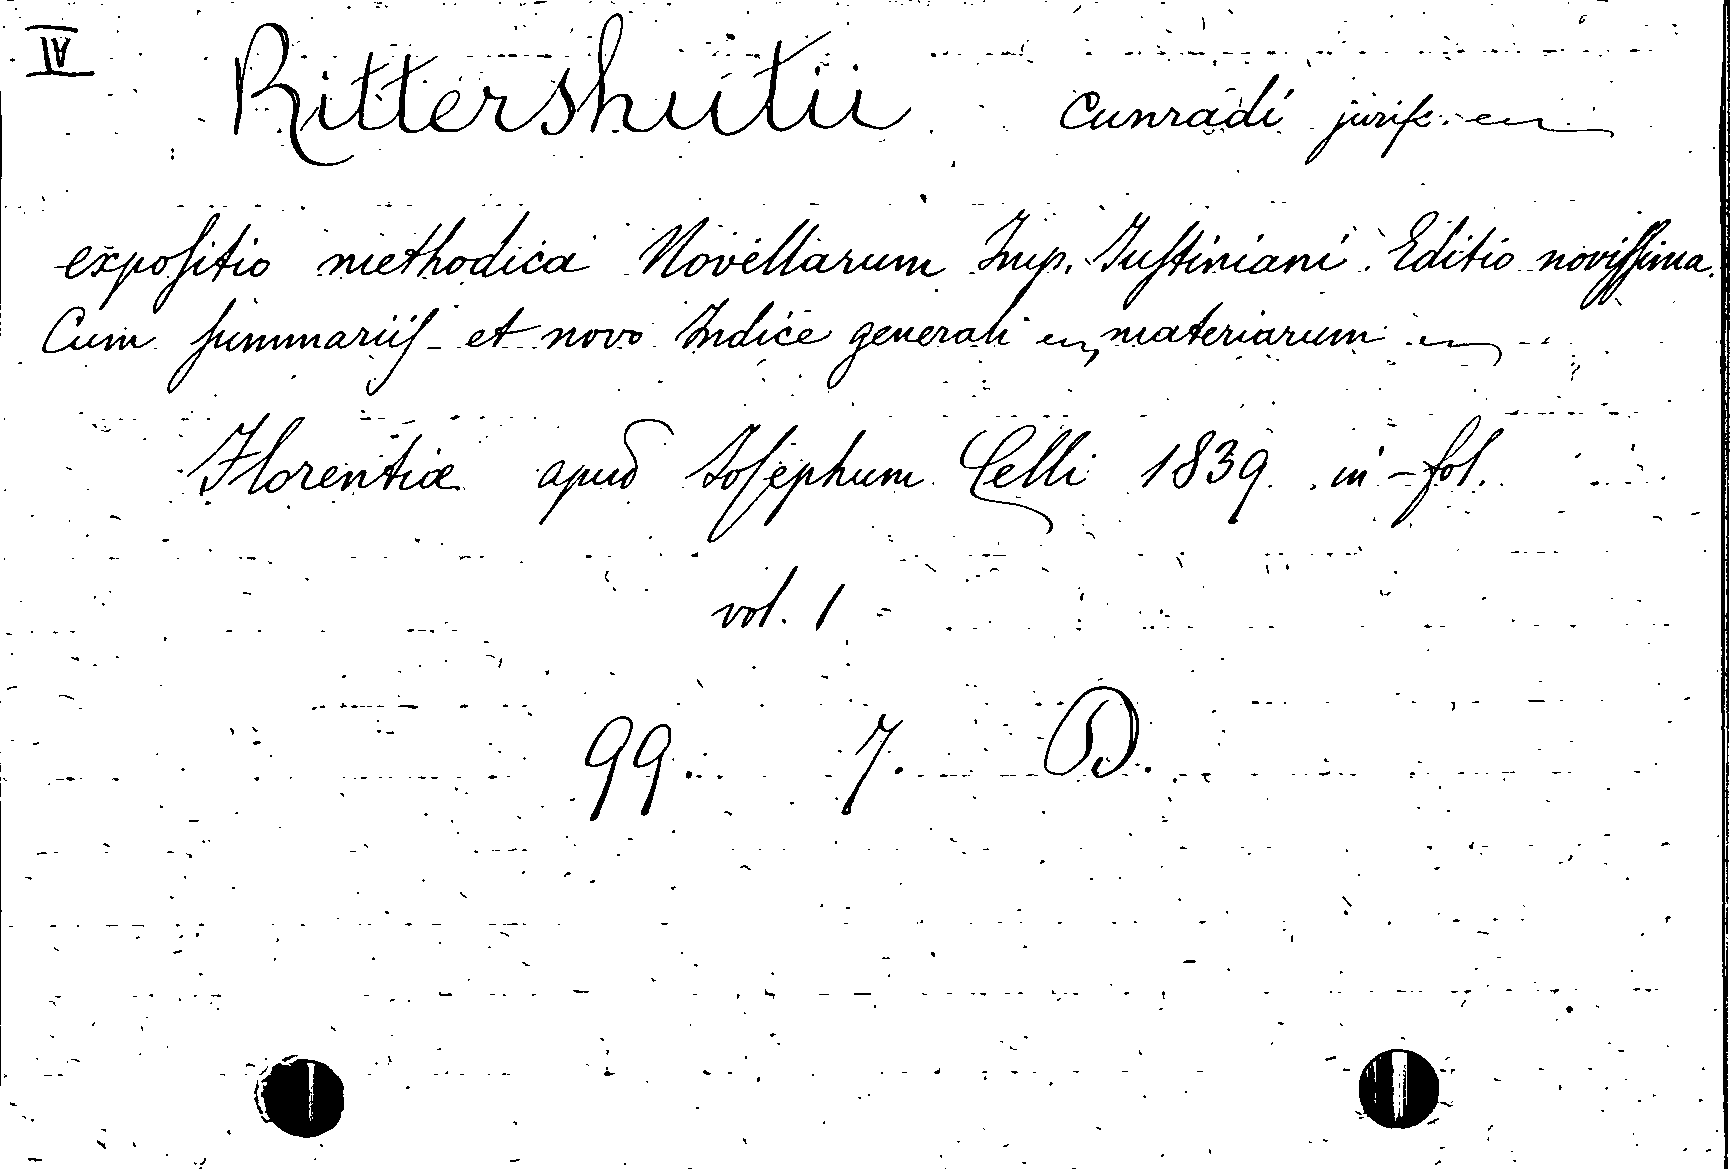 IV
Rittershutii Cunradi juriſc.
expoſitio methodica Novellarum Imp. Juſtiniani. Editio noviſſima.
Cum ſummariiſ et novo Indice generali materiarum
Florentiæ apud Joſephum Celli 1839 in-fol.
vol. 1
99. 7. D.